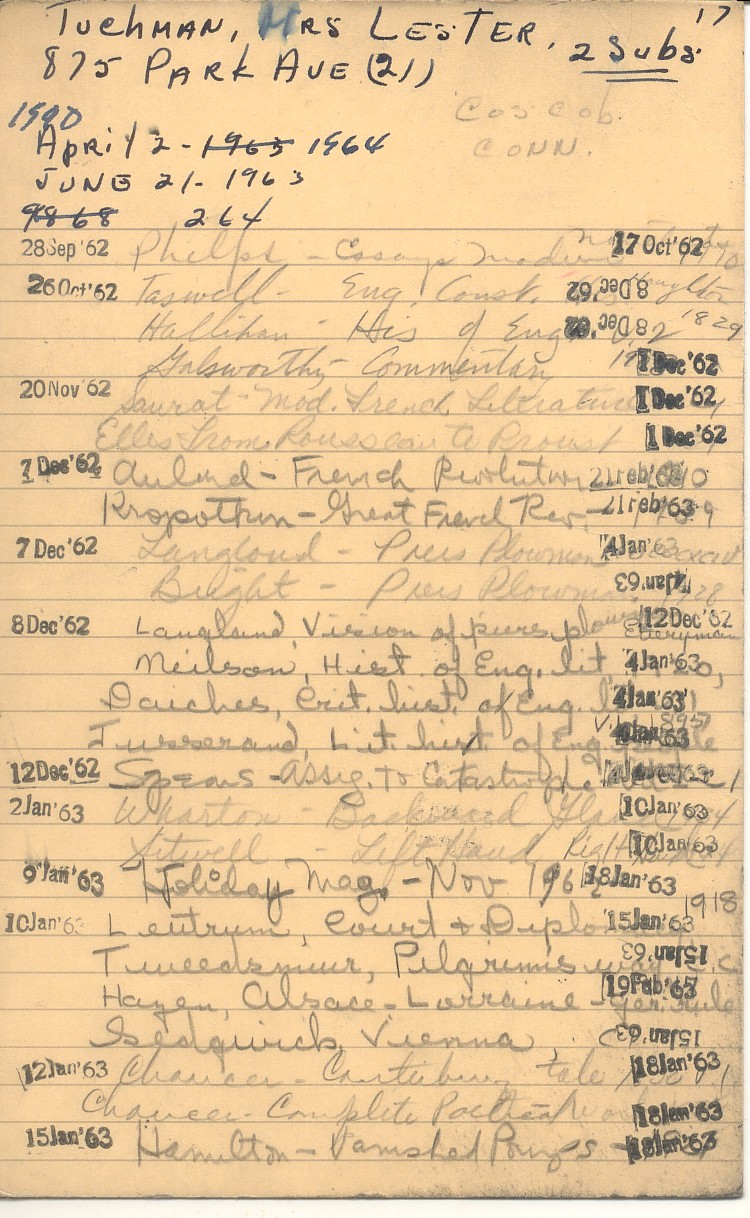 17
Tuchman, Mrs Lester. 2 Subs.
875 Park Ave (21)
Cos Cob
Conn.
1990
April 2 - 1965 1964
June 21 - 1963
9868 264
28 Sep '62 Phelps - Essays Modern 17 Oct '62
26 Oct '62 Taswell - Eng. Const. Houghton 8 Dec '62
Hallihan - His of Eng 1829 8 Dec '62
Galsworthy Commentary 1 Dec '62
20 Nov '62 Saurat - Mod. French Literature 1 Dec '62
Elles From Rousseau to Proust 1 Dec '62
7 Dec '62 Aulard - French Revolution 21 Feb '63
Kropotkin - Great French Rev. 21 Feb '63
7 Dec '62 Langland - Piers Plowman 4 Jan '63
Bright - Piers Plowman 1928 4 Jan '63
8 Dec '62 Langland, Vision of piers plowman Everyman 12 Dec '62
Neilson, Hist. of Eng. lit 4 Jan '63
Daiches, Crit. hist. of Eng. lit 4 Jan '63
Jusserand, Lit. hist. of Eng. V. 1 1895 4 Jan '63
12 Dec '62 Spears - Assig. to Catastrophe 4 Jan '63
2 Jan '63 Wharton - Backward Glance 10 Jan '63
Sitwell - Left Hand Right Hand 10 Jan '63
9 Jan '63 Holiday Mag. - Nov 1962 18 Jan '63
10 Jan '63 Court & Diplo 1918 15 Jan '63
Tweedsmuir, Pilgrim's way 15 Jan '63
Hazen, Alsace-Lorraine - Ger. Rule 19 Feb '63
Sedgwick, Vienna 15 Jan '63
12 Jan '63 Chaucer - Canterbury tale 18 Jan '63
Chaucer - Complete Poetical Works 18 Jan '63
15 Jan '63 Hamilton - Vanished Pomps 18 Jan '63